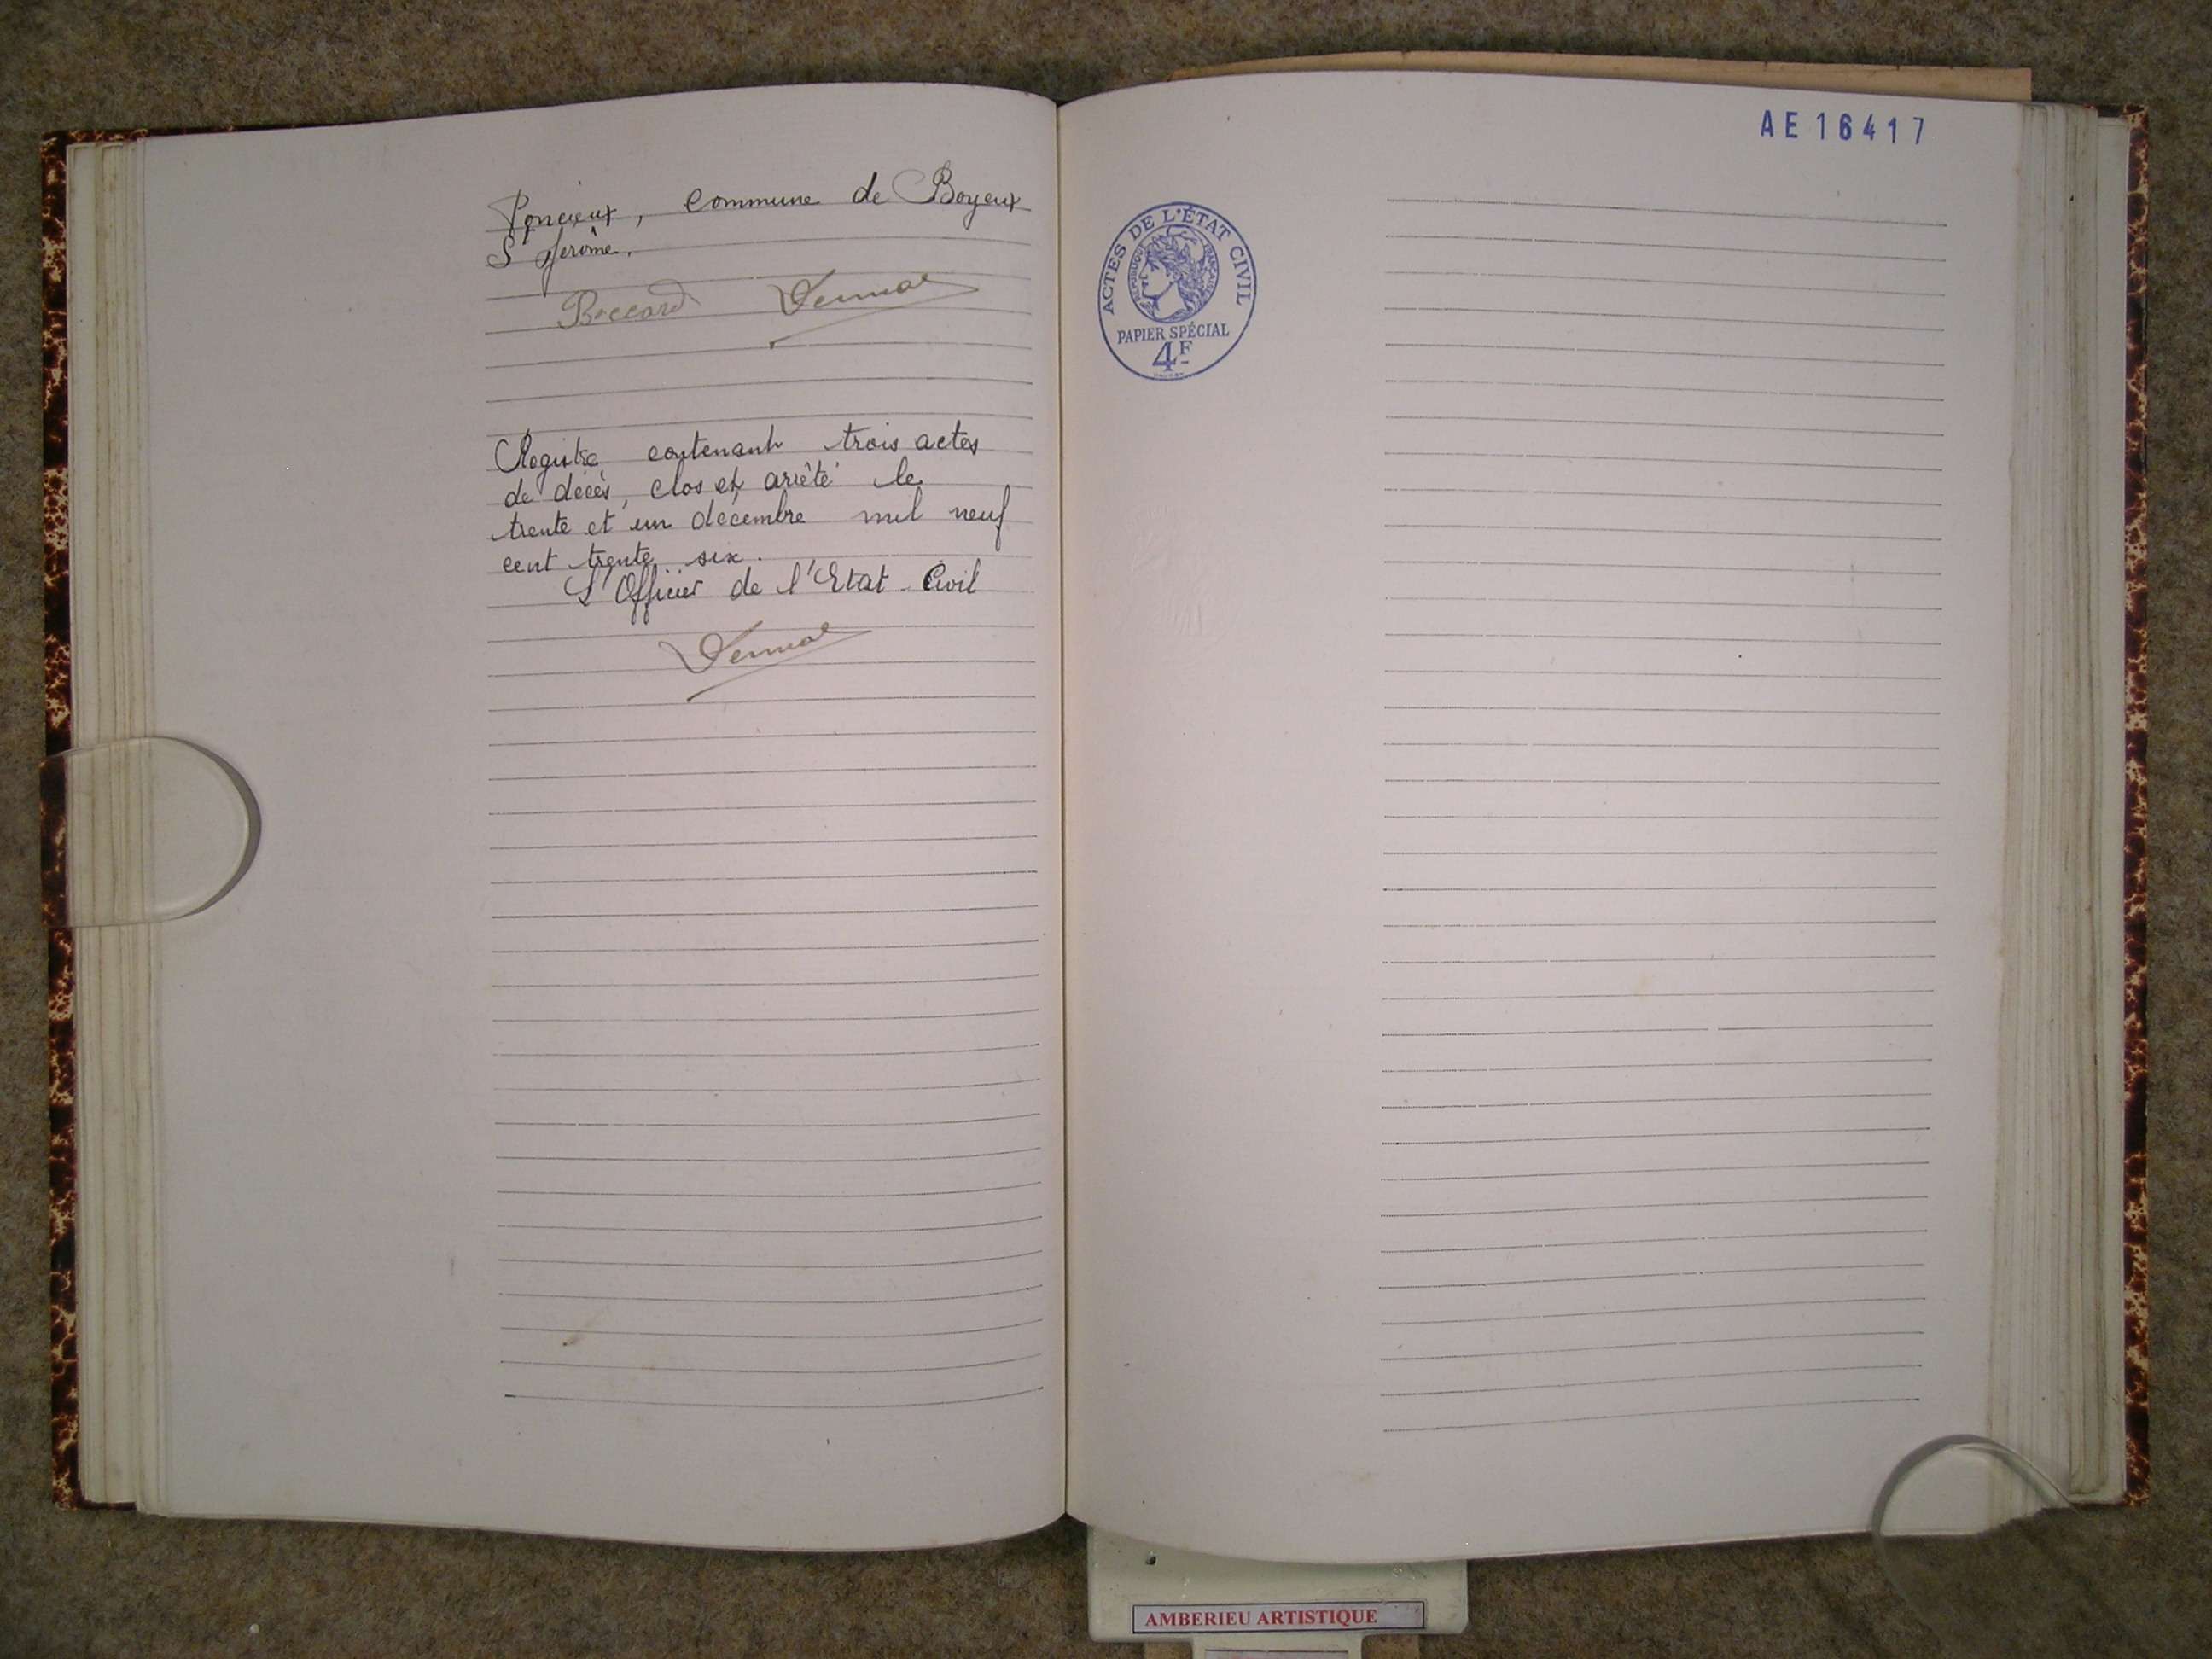 Poncieux, commune de Boyeux
St Jerôme.
Boccard
Registre contenant trois actes
de décès, clos et arrêté le
trente et un décembre mil neuf
cent trente six.
L'Officier de l'Etat Civil
AE16417
ACTES DE L'ÉTAT CIVIL
RÉPUBLIQUE FRANÇAISE
PAPIER SPÉCIAL
4F
AMBERIEU ARTISTIQUE